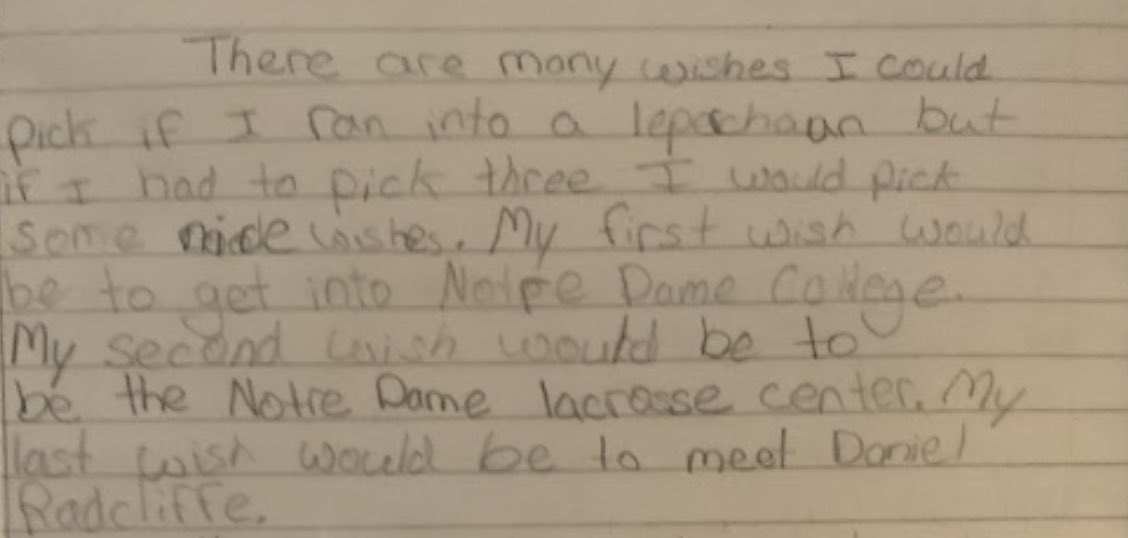 There are many wishes I could
pick if I ran into a lepachaan but
if I had to pick three I would pick
some nice wishes. My first wish would
be to get into Notre Dame College.
My second wish would be to
be the Notre Dame lacrosse center. My
last wish would be to meet Daniel
Radcliffe.